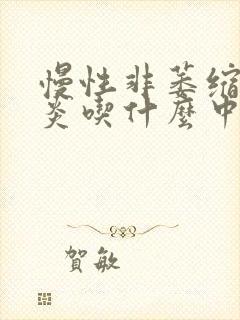 慢性非萎縮
炎喫什麼中
賀敏